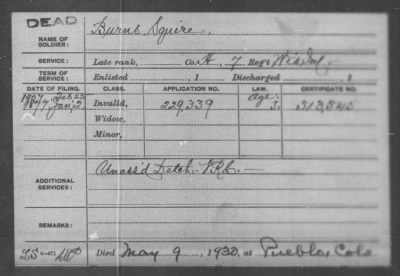 DEAD
NAME OF SOLDIER: Burns Squire.
SERVICE: Late rank, Co. H, 7 Reg't Wis Inf.
TERM OF SERVICE: Enlisted , 1 Discharged , 1
DATE OF FILING. CLASS. APPLICATION NO. LAW. CERTIFICATE NO.
1907 Feb 25 Age
1877 Jan. 2 Invalid, 229,339 313,845
Widow,
Minor,
ADDITIONAL SERVICES: Unass'd Detch. V.R.C.
REMARKS:
Died May 9, 1930, at Pueblo, Colo